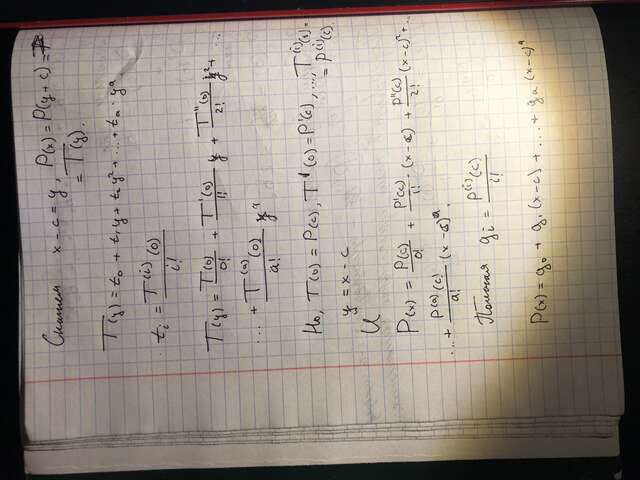 Скажем x - c = y, P(x) = P(y + c) =
= T(y).
T(y) = t₀ + t₁y + t₂y² + ... + tₐ · yᵃ
tᵢ = T⁽ⁱ⁾(0) / i!
T(y) = T(0)/0! + T'(0)/1! y + T''(0)/2! y² + ...
... + T⁽ᵃ⁾(0)/a! yᵃ
Но, T(0) = P(c), T'(0) = P'(c), ..., T⁽ⁱ⁾(0) =
= P⁽ⁱ⁾(c).
y = x - c
И
P(x) = P(c)/0! + P'(c)/1! (x - c) + P''(c)/2! (x - c)² + ...
... + P⁽ᵃ⁾(c)/a! (x - c)ᵃ.
Полагая gᵢ = P⁽ⁱ⁾(c) / i!
P(x) = g₀ + g₁ (x - c) + ... + gₐ (x - c)ᵃ